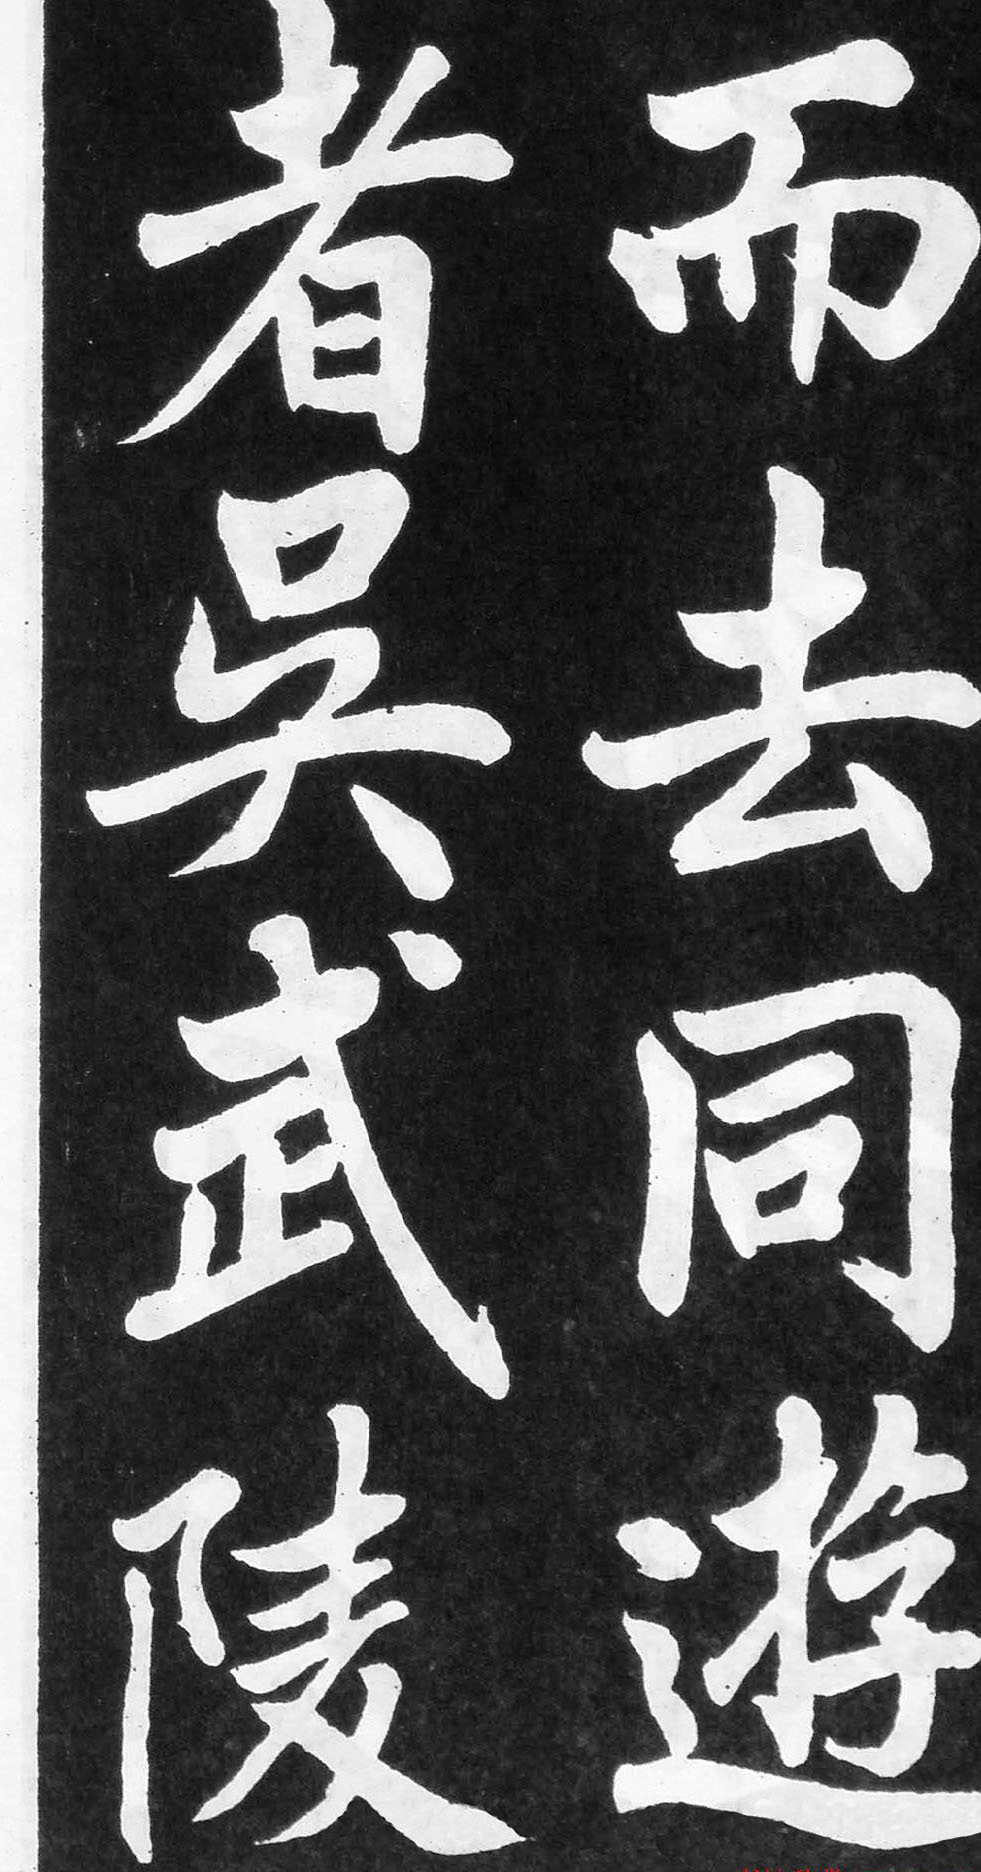 而去同遊
者吳武陵